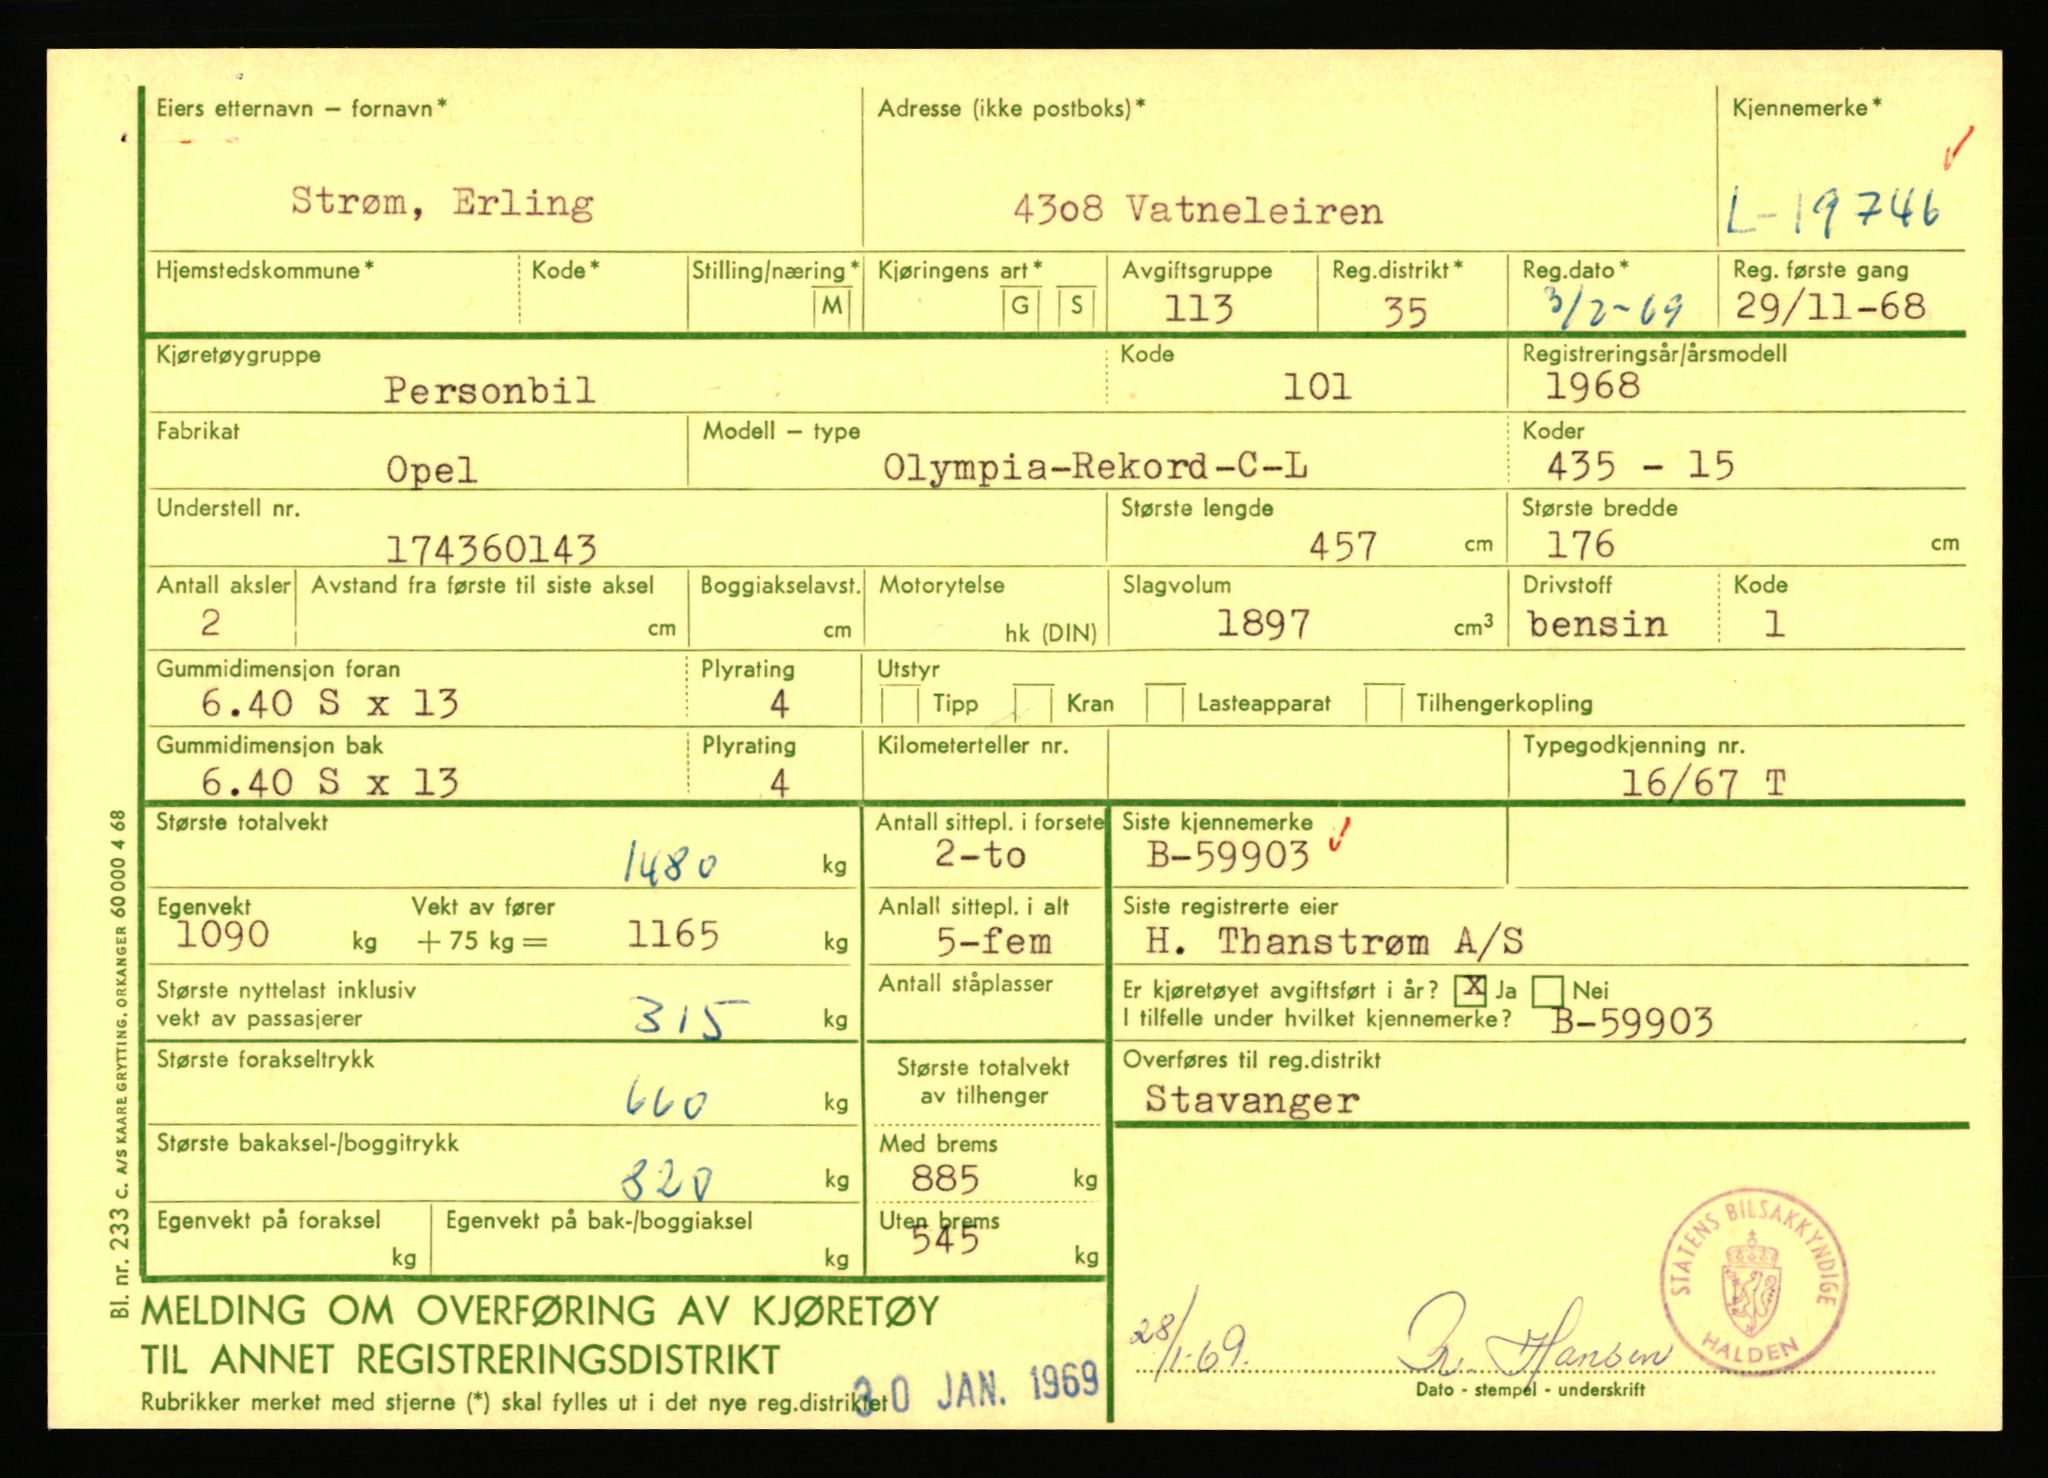 Eiers etternavn – fornavn*
Strøm, Erling
Adresse (ikke postboks)*
4308 Vatneleiren
Kjennemerke*
L-19746
Hjemstedskommune*
Kode*
Stilling/næring*
M
Kjøringens art*
G S
Avgiftsgruppe
113
Reg.distrikt*
35
Reg.dato*
3/2-69
Reg. første gang
29/11-68
Kjøretøygruppe
Personbil
Kode
101
Registreringsår/årsmodell
1968
Fabrikat
Opel
Modell – type
Olympia-Rekord-C-L
Koder
435 - 15
Understell nr.
174360143
Største lengde
457 cm
Største bredde
176 cm
Antall aksler
2
Avstand fra første til siste aksel
cm
Boggiakselavst.
cm
Motorytelse
hk (DIN)
Slagvolum
1897 cm³
Drivstoff
bensin
Kode
1
Gummidimensjon foran
6.40 S x 13
Plyrating
4
Utstyr
Tipp Kran Lasteapparat Tilhengerkopling
Gummidimensjon bak
6.40 S x 13
Plyrating
4
Kilometerteller nr.
Typegodkjenning nr.
16/67 T
Største totalvekt
1480 kg
Egenvekt
1090 kg
Vekt av fører
+ 75 kg = 1165 kg
Største nyttelast inklusiv
vekt av passasjerer
315 kg
Største forakseltrykk
660 kg
Største bakaksel-/boggitrykk
820 kg
Egenvekt på foraksel
kg
Egenvekt på bak-/boggiaksel
kg
Antall sittepl. i forsete
2-to
Anlall sittepl. i alt
5-fem
Antall ståplasser
Største totalvekt
av tilhenger
Med brems
885 kg
Uten brems
545 kg
Siste kjennemerke
B-59903
Siste registrerte eier
H. Thanstrøm A/S
Er kjøretøyet avgiftsført i år? X Ja Nei
I tilfelle under hvilket kjennemerke? B-59903
Overføres til reg.distrikt
Stavanger
STATENS BILSAKKYNDIGE
HALDEN
28/1-69. Hansen
Dato - stempel - underskrift
MELDING OM OVERFØRING AV KJØRETØY
TIL ANNET REGISTRERINGSDISTRIKT
Rubrikker merket med stjerne (*) skal fylles ut i det nye reg.distriktet
30 JAN. 1969
Bl. nr. 233 C. A/S KAARE GRYTTING, ORKANGER 60000 4 68